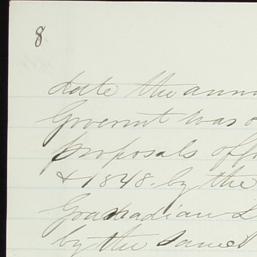 8
date the ann
Governt was
proposals off
& 1848. by the
Granadian
by the same